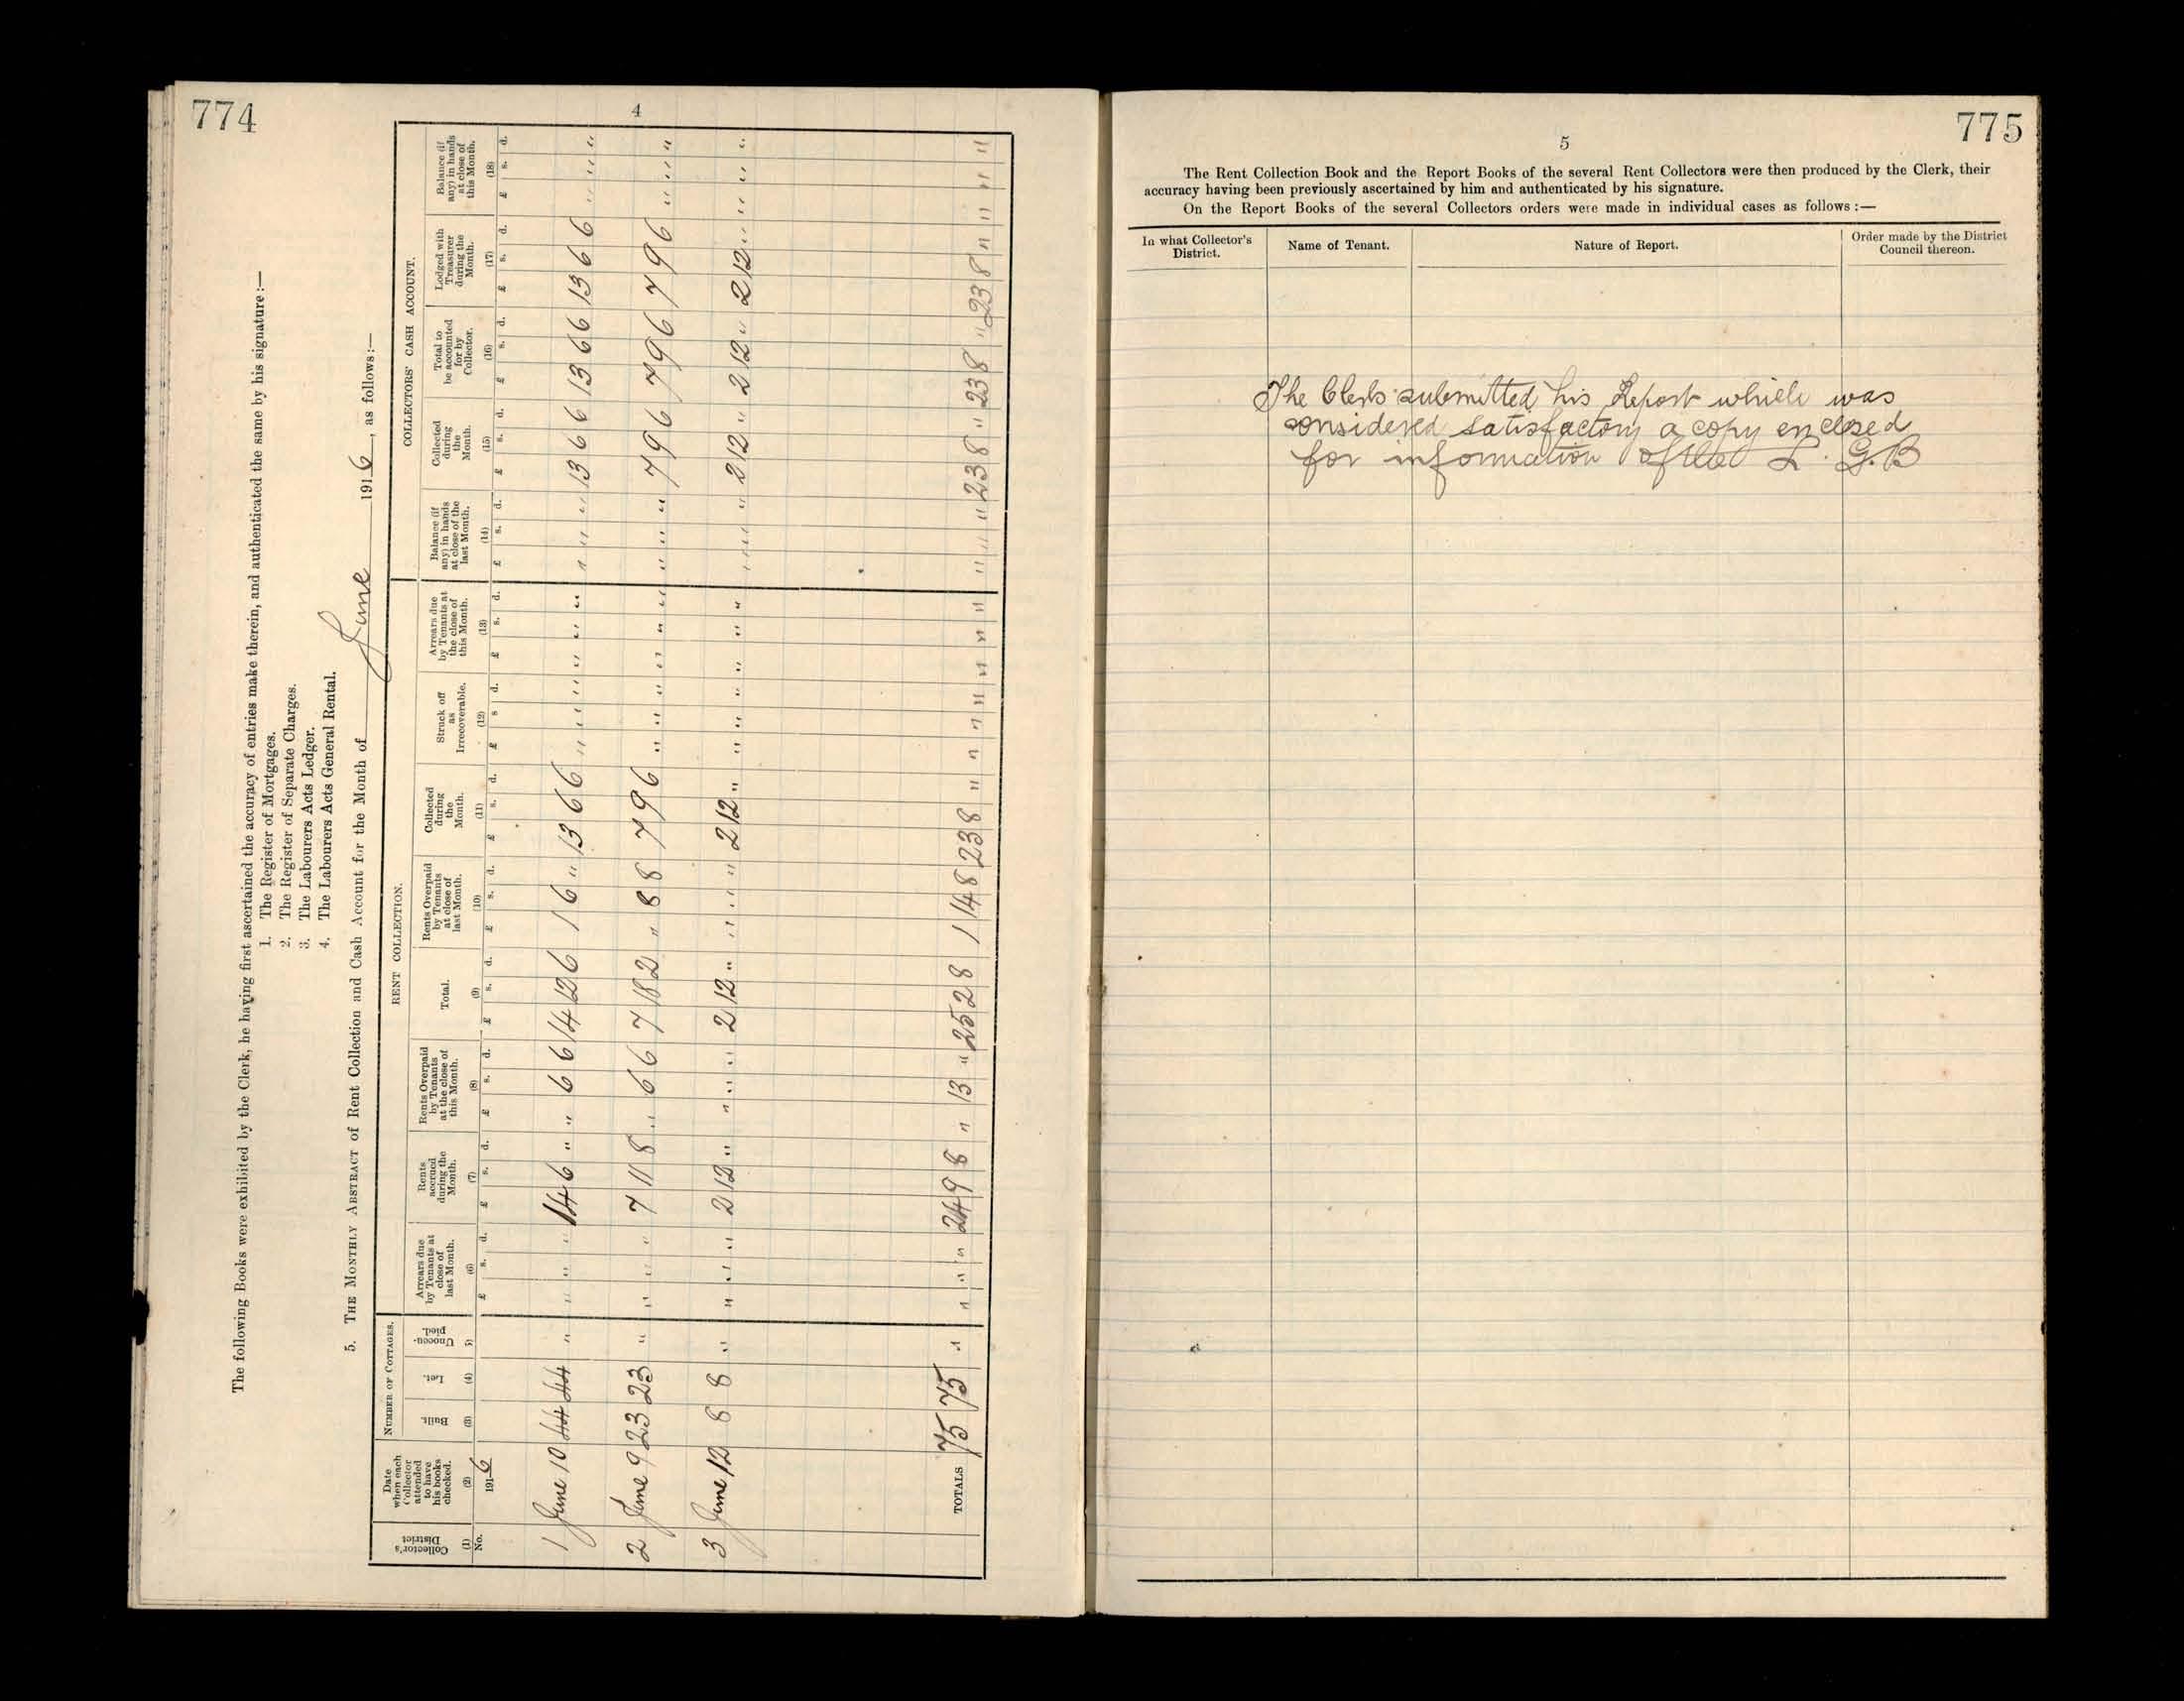 774
4
The following Books were exhibited by the Clerk, he having first ascertained the accuracy of entries make therein, and authenticated the same by his signature :—
1. The Register of Mortgages.
2. The Register of Separate Charges.
3. The Labourers Acts Ledger.
4. The Labourers Acts General Rental.
5. THE MONTHLY ABSTRACT of Rent Collection and Cash Account for the Month of June 1916, as follows:—
NUMBER OF COTTAGES. RENT COLLECTION. COLLECTORS' CASH ACCOUNT.
Collector's District (1) No.
Date when each Collector attended to have his books checked. (2) 1916
Built. (3)
Let. (4)
Unoccupied. (5)
Arrears due by Tenants at close of last Month. (6) £ s. d.
Rents accrued during the Month. (7) £ s. d.
Rents Overpaid by Tenants at the close of this Month. (8) £ s. d.
Total. (9) £ s. d.
Rents Overpaid by Tenants at close of last Month. (10) £ s. d.
Collected during the Month. (11) £ s. d.
Struck off as Irrecoverable. (12) £ s d.
Arrears due by Tenants at the close of this Month. (13) £ s. d.
Balance (if any) in hands at close of the last Month. (14) £ s. d.
Collected during the Month. (15) £ s. d.
Total to be accounted for by Collector. (16) £ s. d.
Lodged with Treasurer during the Month. (17) £ s. d.
Balance (if any) in hands at close of this Month. (18) £ s. d.
1 June 10 44 44 " " " " 14 6 " " 6 6 14 12 6 1 6 " 13 6 6 " " " " " " " " " 13 6 6 13 6 6 13 6 6 " " "
2 June 9 23 23 " " " " 7 11 8 " 6 6 7 18 2 " 8 8 7 9 6 " " " " " " " " " 7 9 6 7 9 6 7 9 6 " " "
3 June 12 8 8 " " " " 2 12 " " " " 2 12 " " " " 2 12 " " " " " " " " " " 2 12 " 2 12 " 2 12 " " " "
TOTALS 75 75 " " " " 24 9 8 " 13 " 25 2 8 1 14 8 23 8 " " " " " " " " " " 23 8 " 23 8 " 23 8 " " " "
775
5
The Rent Collection Book and the Report Books of the several Rent Collectors were then produced by the Clerk, their
accuracy having been previously ascertained by him and authenticated by his signature.
On the Report Books of the several Collectors orders were made in individual cases as follows :—
In what Collector's District. Name of Tenant. Nature of Report. Order made by the District Council thereon.
The Clerk submitted his Report which was
considered satisfactory a copy enclosed
for information of the L. G. B